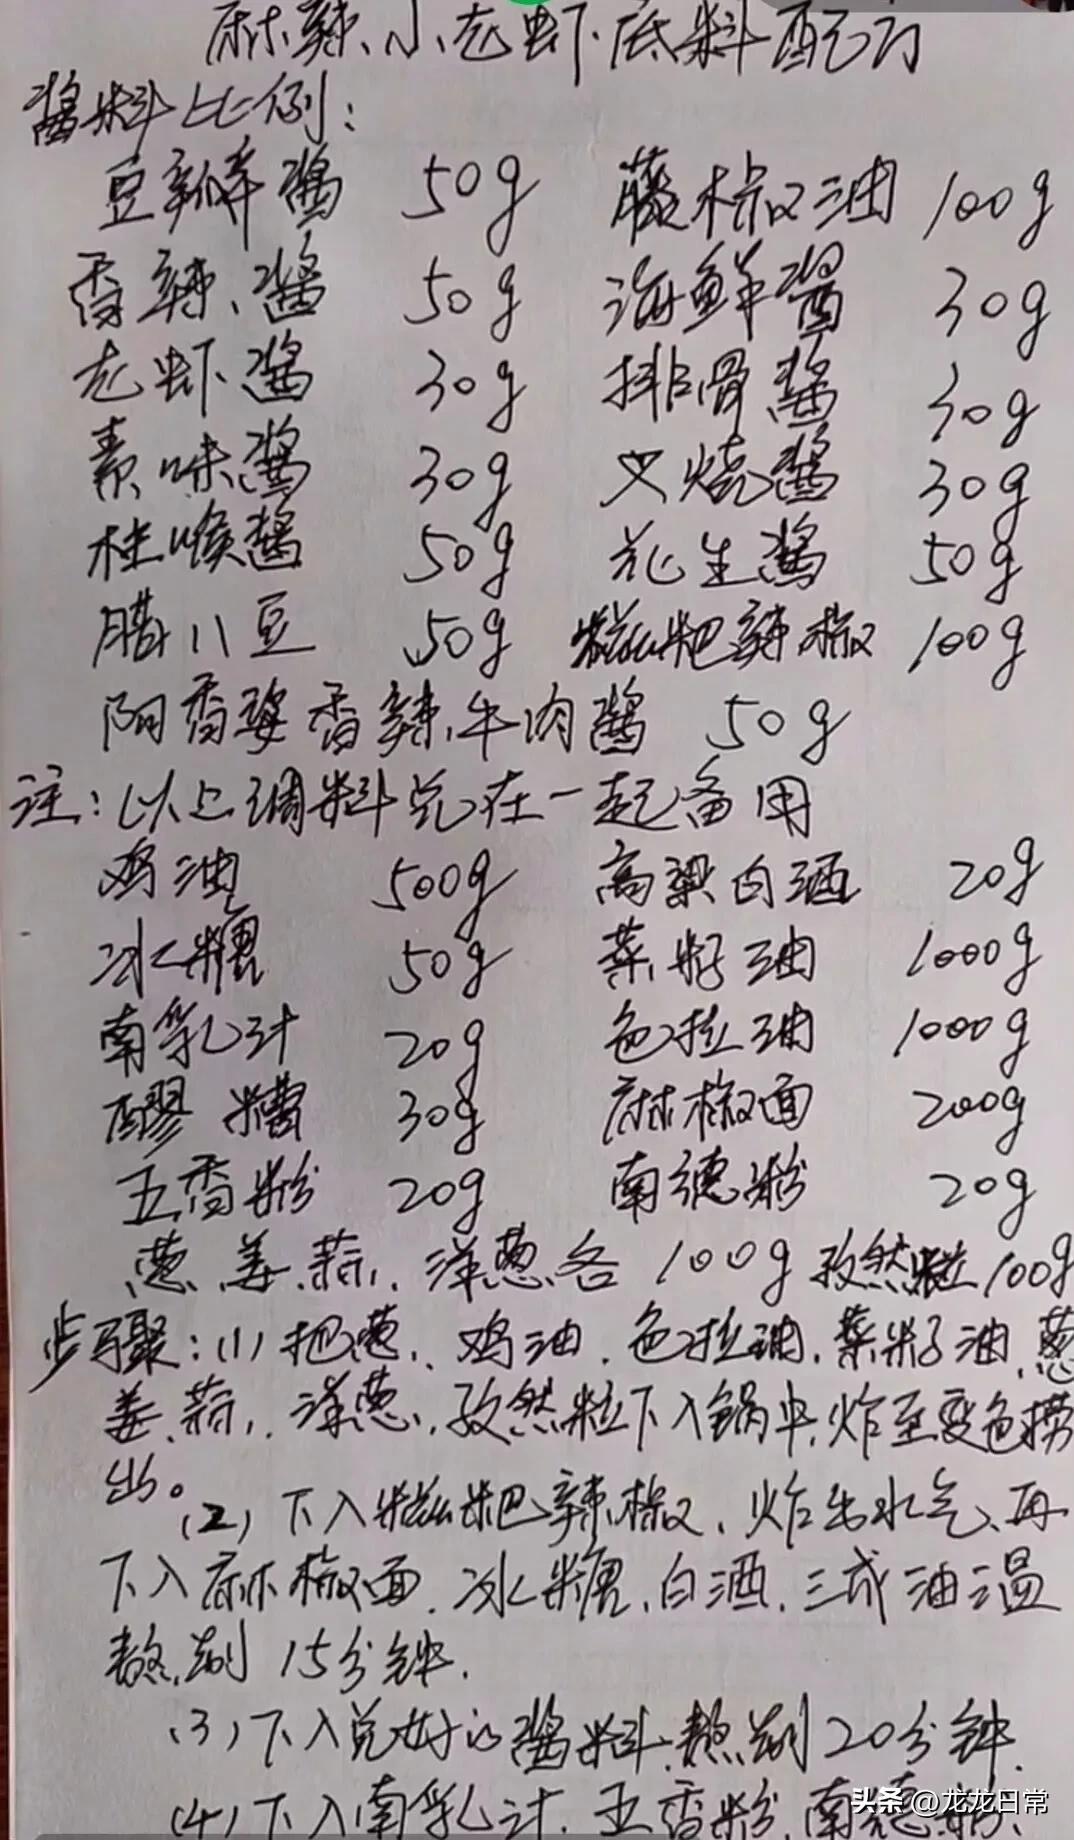 麻辣小龙虾底料配方
酱料比例:
豆瓣酱 50g 藤椒油 100g
香辣酱 50g 海鲜酱 30g
龙虾酱 30g 排骨酱 30g
素味酱 30g 叉烧酱 30g
柱喉酱 50g 花生酱 50g
腊八豆 50g 糍粑辣椒 100g
阿香婆香辣牛肉酱 50g
注:以上调料兑在一起备用
鸡油 500g 高粱白酒 20g
冰糖 50g 菜籽油 1000g
南乳汁 20g 色拉油 1000g
醪糟 30g 麻椒面 200g
五香粉 20g 南德粉 20g
葱、姜、蒜、洋葱各 100g 孜然粒 100g
步骤:(1)把葱、鸡油、色拉油、菜籽油、葱
姜、蒜、洋葱、孜然粒下入锅中,炸至变色捞
出。
(2)下入糍粑辣椒,炸出水气、再
下入麻椒面、冰糖、白酒,三成油温
熬制15分钟.
(3)下入兑好的酱料熬制20分钟.
(4)下入南乳汁、五香粉、南德粉、
头条 @龙龙日常